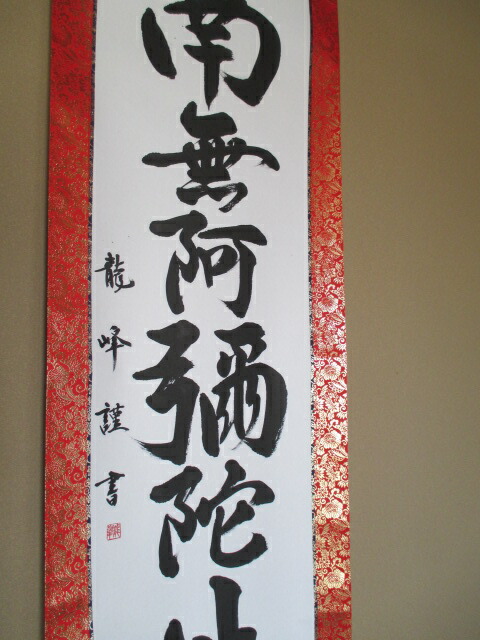 南無阿彌陀
龍峰謹書